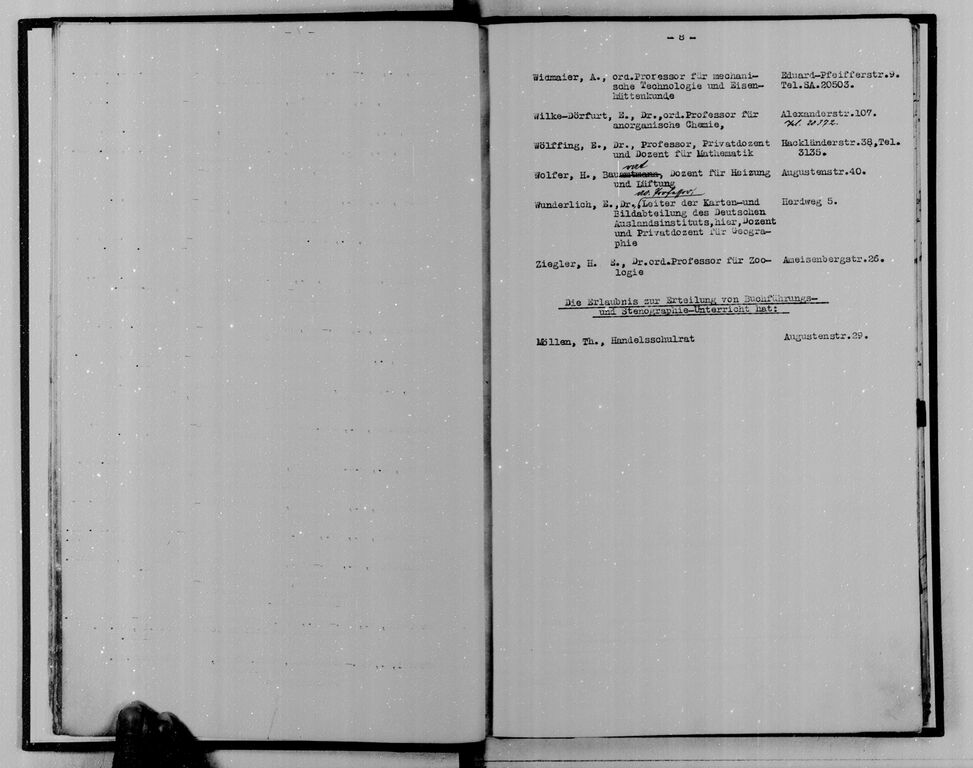 - 8 -
Widmaier, A., ord.Professor für mechani- Eduard-Pfeifferstr.9.
sche Technologie und Eisen- Tel.SA.20503.
hüttenkunde
Wilke-Dörfurt, E., Dr.,ord.Professor für Alexanderstr.107.
anorganische Chemie, Tel. 20372.
Wölffing, E., Dr., Professor, Privatdozent Hackländerstr.38,Tel.
und Dozent für Mathematik 3135.
rat
Wolfer, H., Bauamtmann, Dozent für Heizung Augustenstr.40.
und Lüftung
ao. Professor,
Wunderlich, E.,Dr.,Leiter der Karten-und Herdweg 5.
Bildabteilung des Deutschen
Auslandsinstituts,hier,Dozent
und Privatdozent für Geogra-
phie
Ziegler, H. E., Dr.ord.Professor für Zoo- Ameisenbergstr.26.
logie
Die Erlaubnis zur Erteilung von Buchführungs-
und Stenographie-Unterricht hat:
Möllen, Th., Handelsschulrat Augustenstr.29.